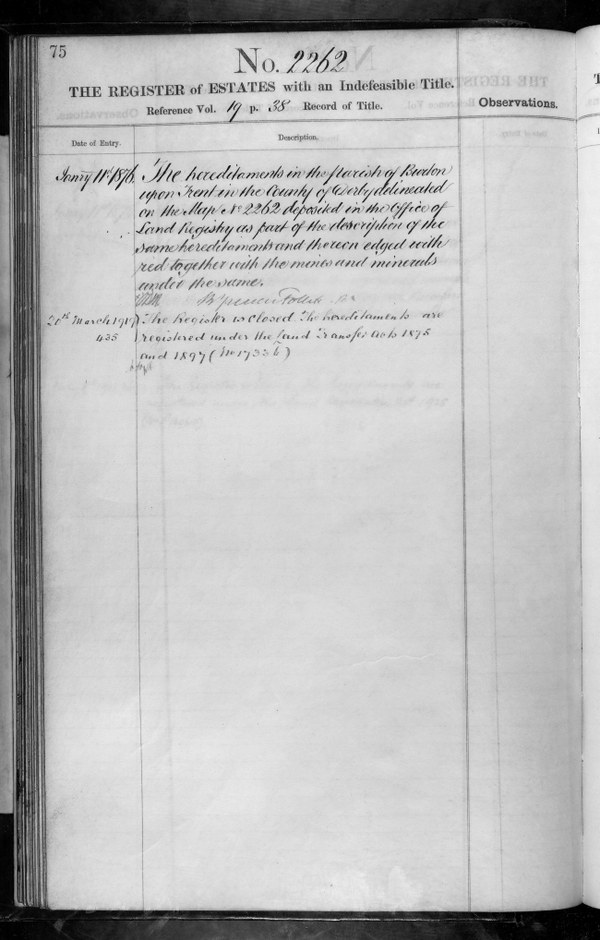 75
No. 2262
THE REGISTER of ESTATES with an Indefeasible Title.
Reference Vol. 19 p. 38 Record of Title.
Observations.
Date of Entry.
Description.
Janry 11th 1876.
The hereditaments in the parish of Burton
upon Trent in the County of Derby delineated
on the Map No 2262 deposited in the Office of
Land Registry as part of the description of the
same hereditaments and thereon edged with
red together with the mines and minerals
under the same.
Follett
20th March 1919
435
The Register is closed. The hereditaments are
registered under the Land Transfer Acts 1875
and 1897 (No 17336)